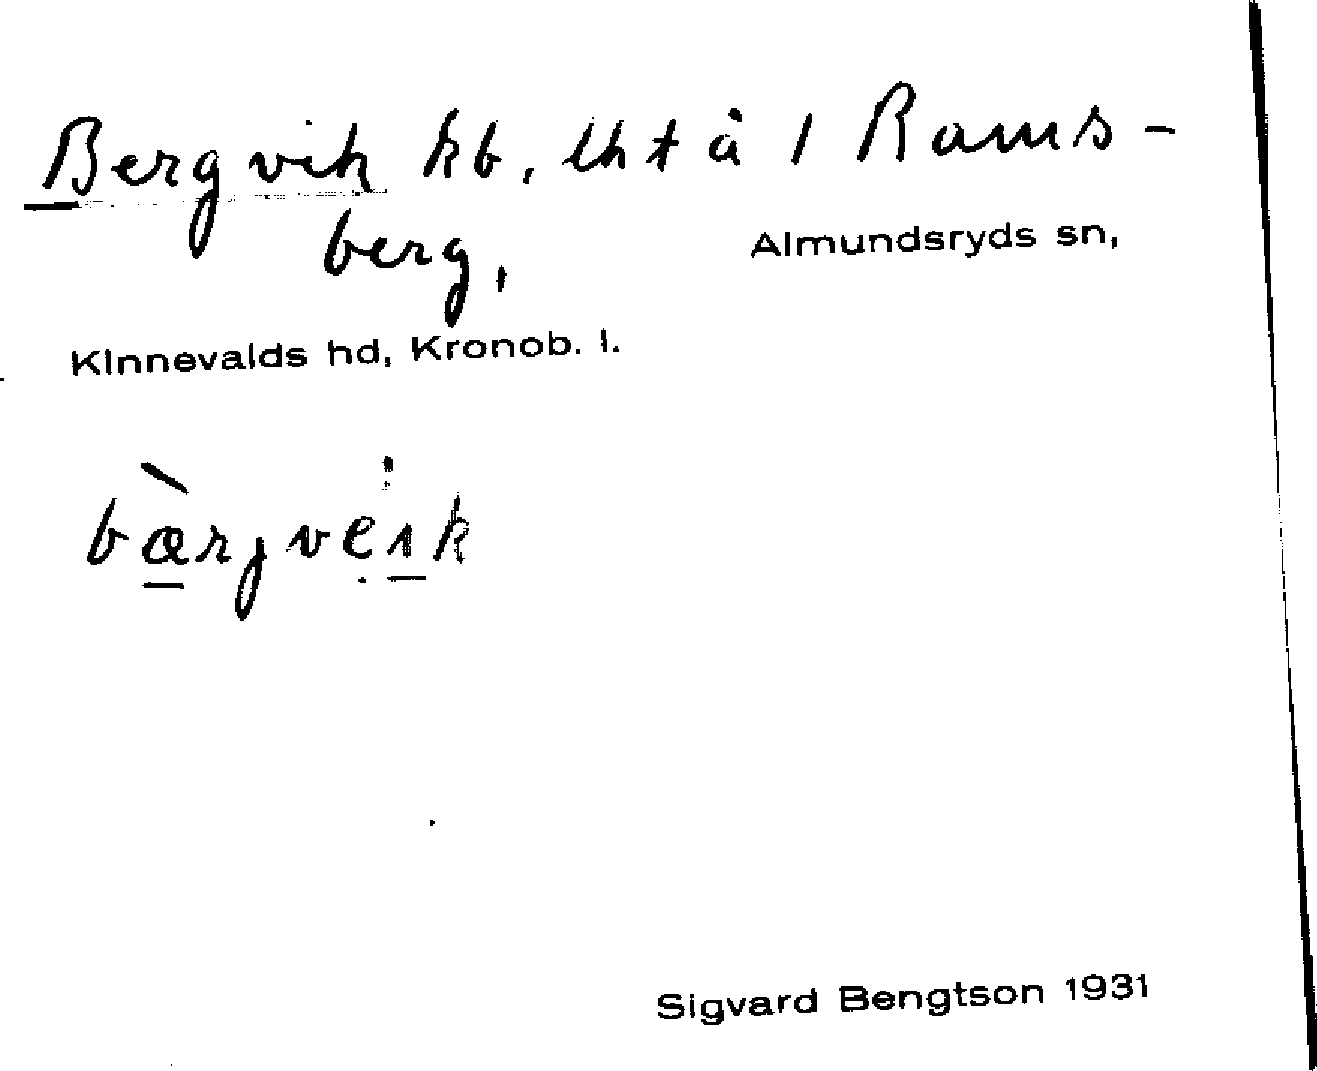 Bergvik kb, lht å 1 Rams-
berg,
Almundsryds sn,
Kinnevalds hd, Kronob. l.
bæ̀rjveık
Sigvard Bengtson 1931